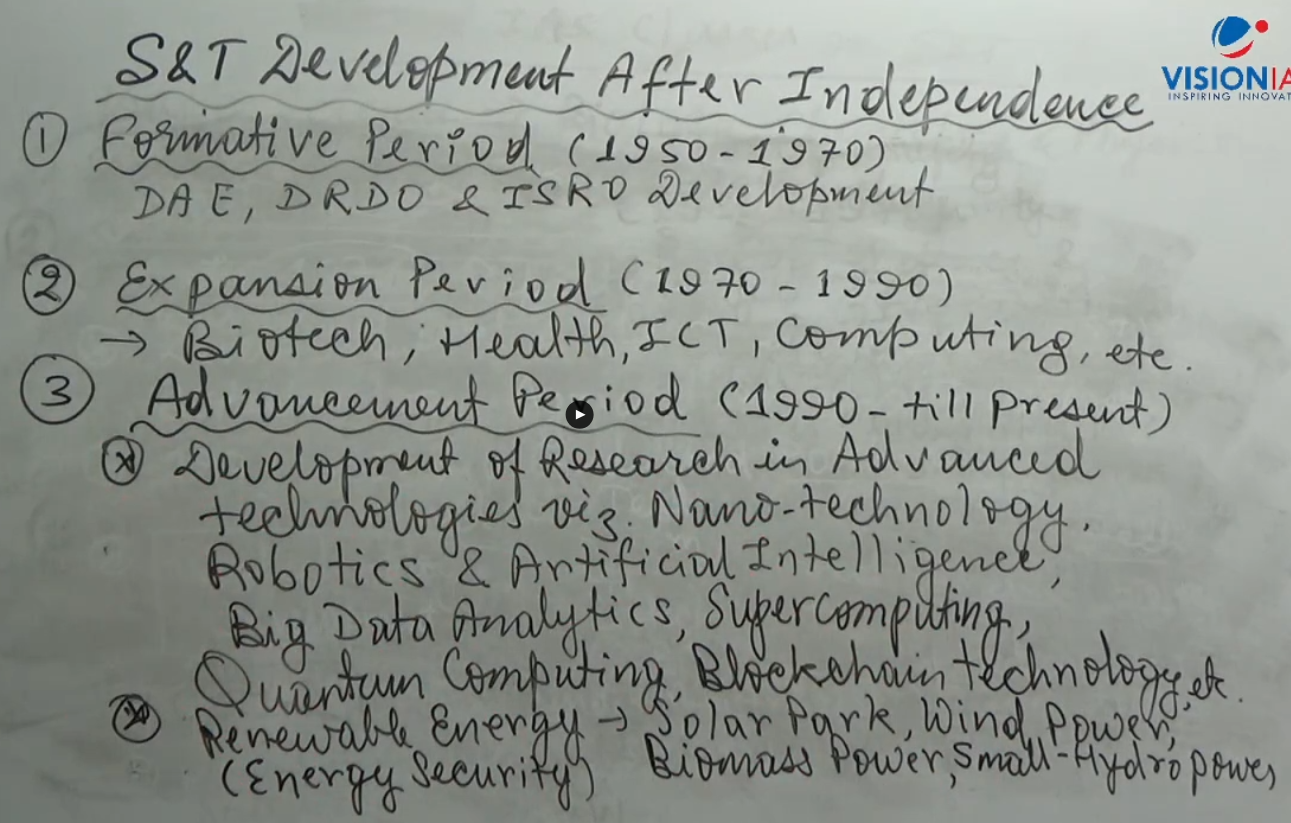 S&T Development After Independence
VISIONIA
INSPIRING INNOVAT
① Formative Period (1950-1970)
DAE, DRDO & ISRO Development
② Expansion Period (1970-1990)
→ Biotech, Health, ICT, Computing, etc.
③ Advancement Period (1990- till present)
Development of Research in Advanced
technologies viz. Nano-technology,
Robotics & Artificial Intelligence,
Big Data Analytics, Supercomputing,
Quantum Computing, Blockchain technology, etc.
Renewable Energy → Solar Park, Wind Power,
(Energy Security) Biomass Power, Small-Hydropower